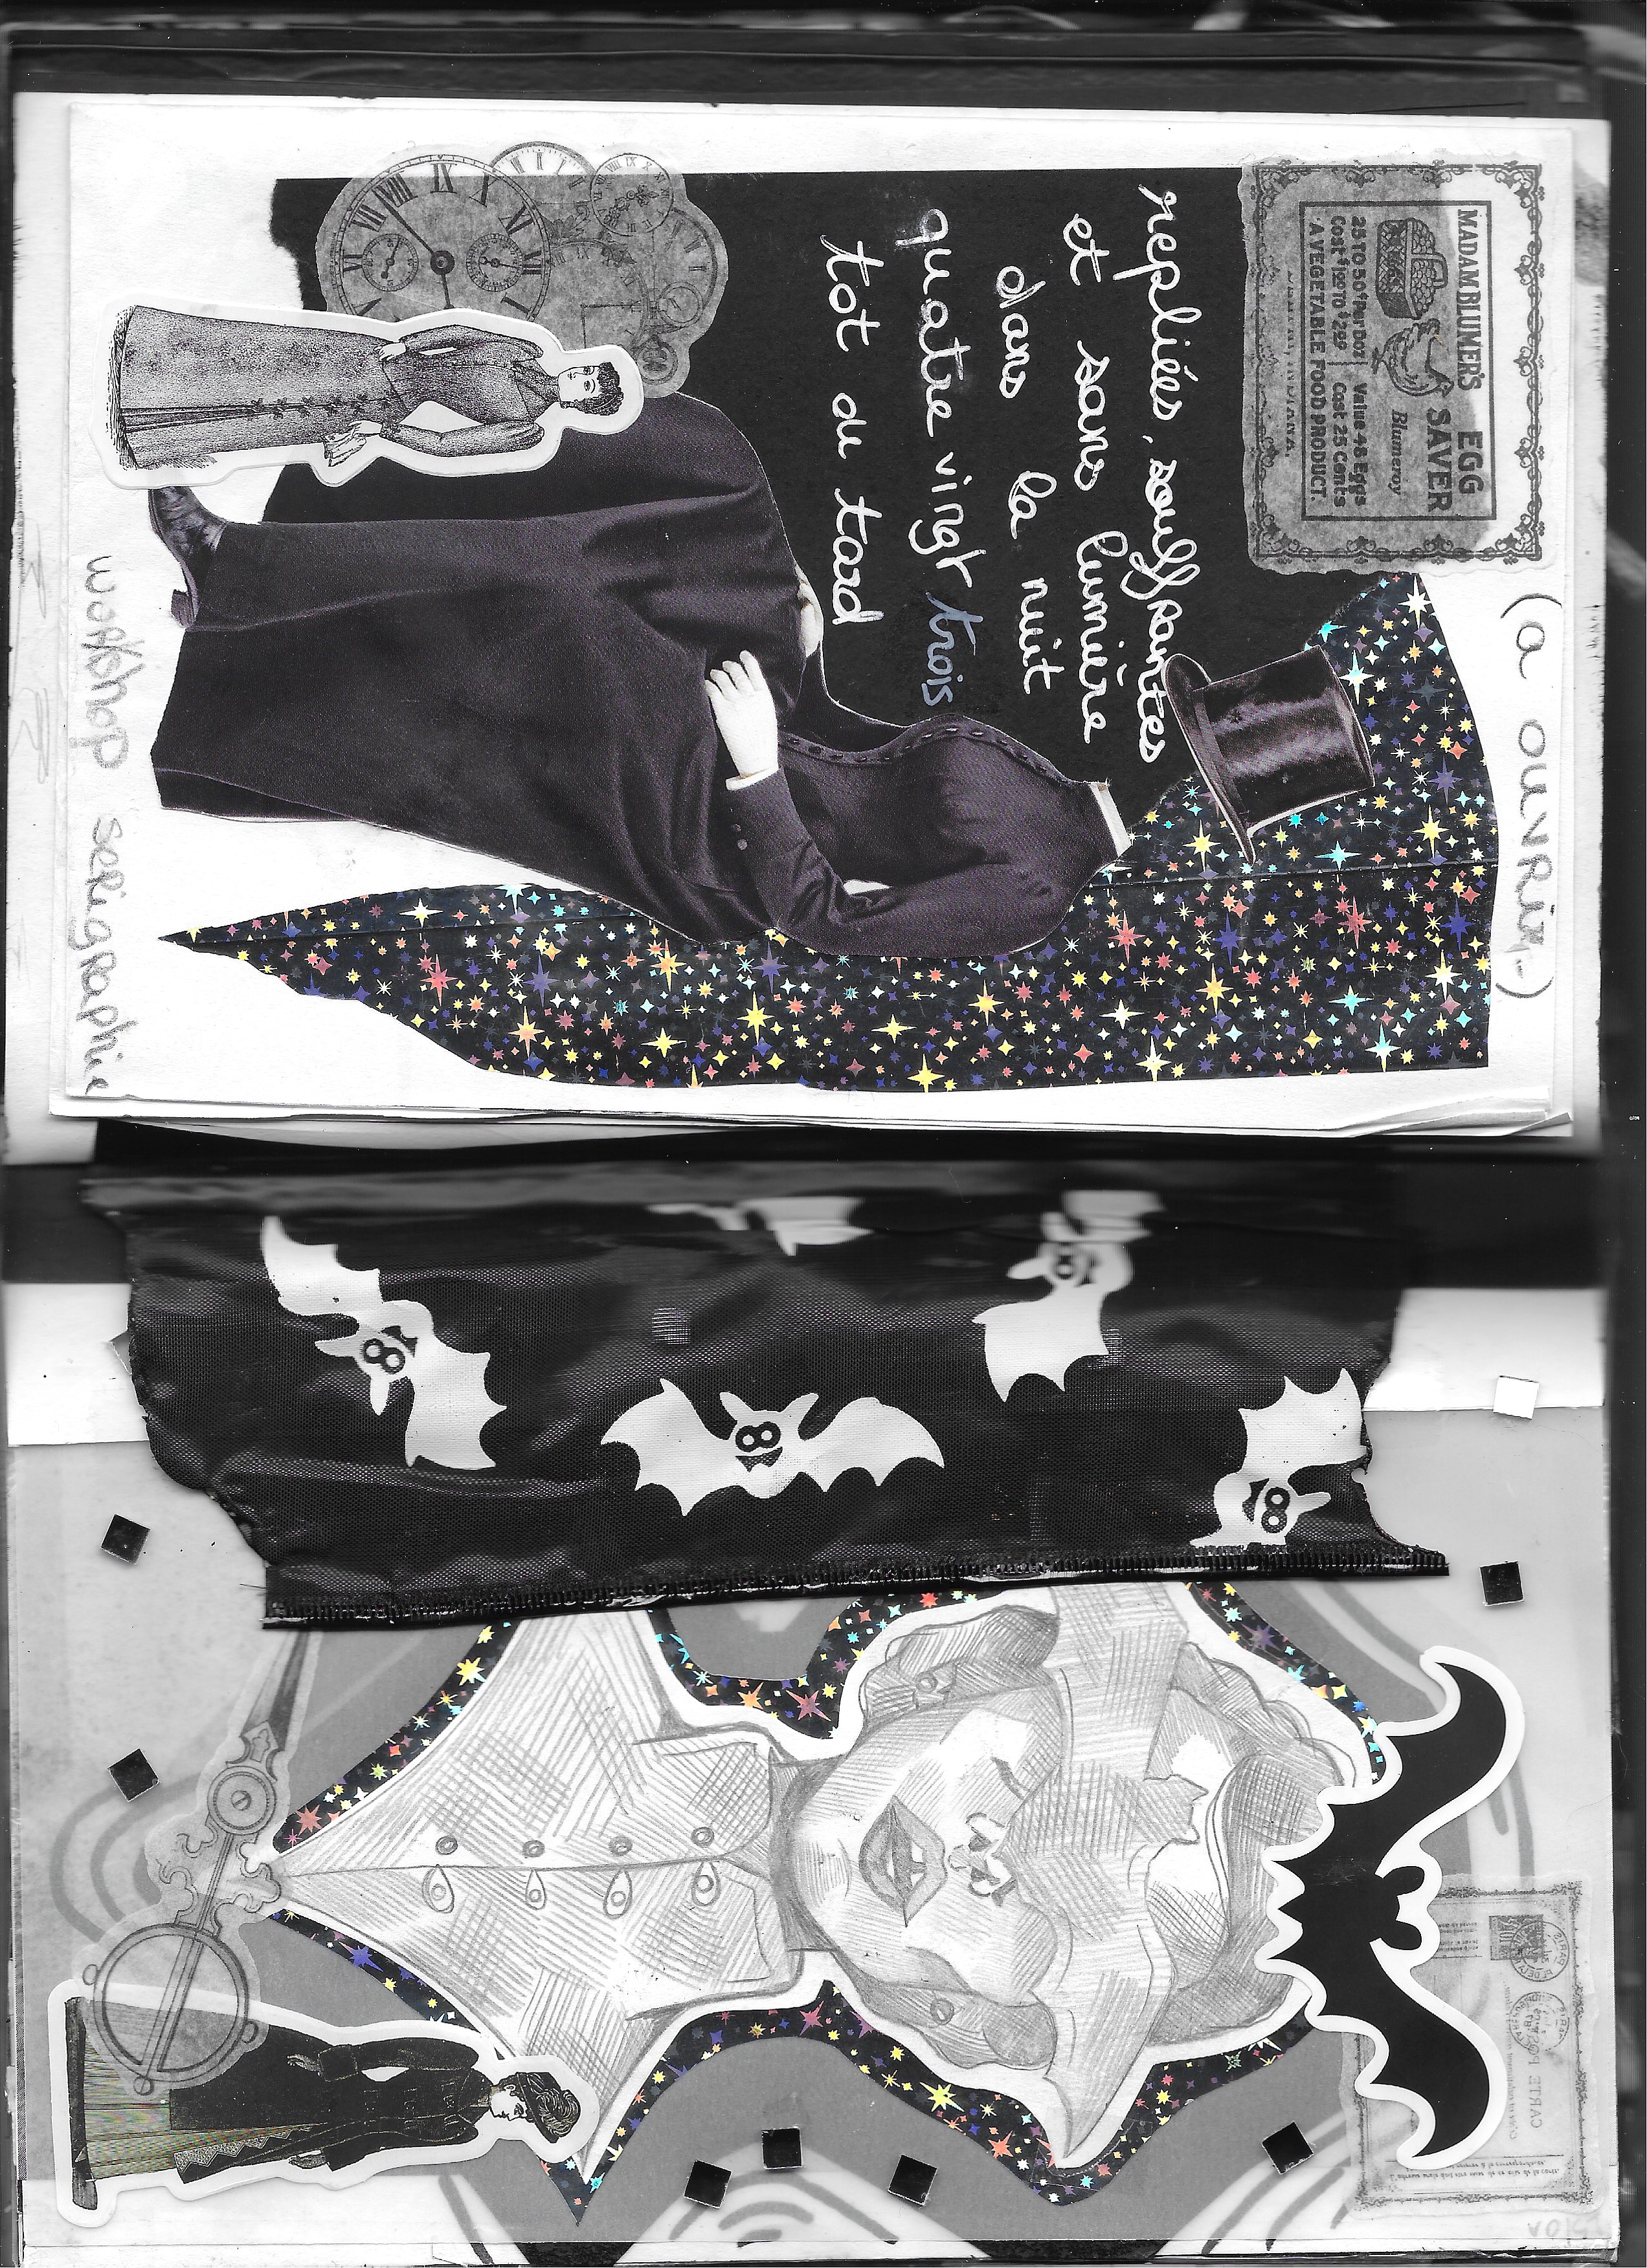 (a ouvrir..)
MADAM BLUMER'S EGG SAVER
Blumeroy
25 TO 50¢ Per Doz
Cost $1.00 TO $2.99
Value 48 Eggs
Cost 25 Cents
A VEGETABLE FOOD PRODUCT.
INDIANA.
repliées, souffrantes
et sans lumière
dans la nuit
quatre vingt trois
tot ou tard
workshop serigraphie
CARTE POS
PARIS
XII
I